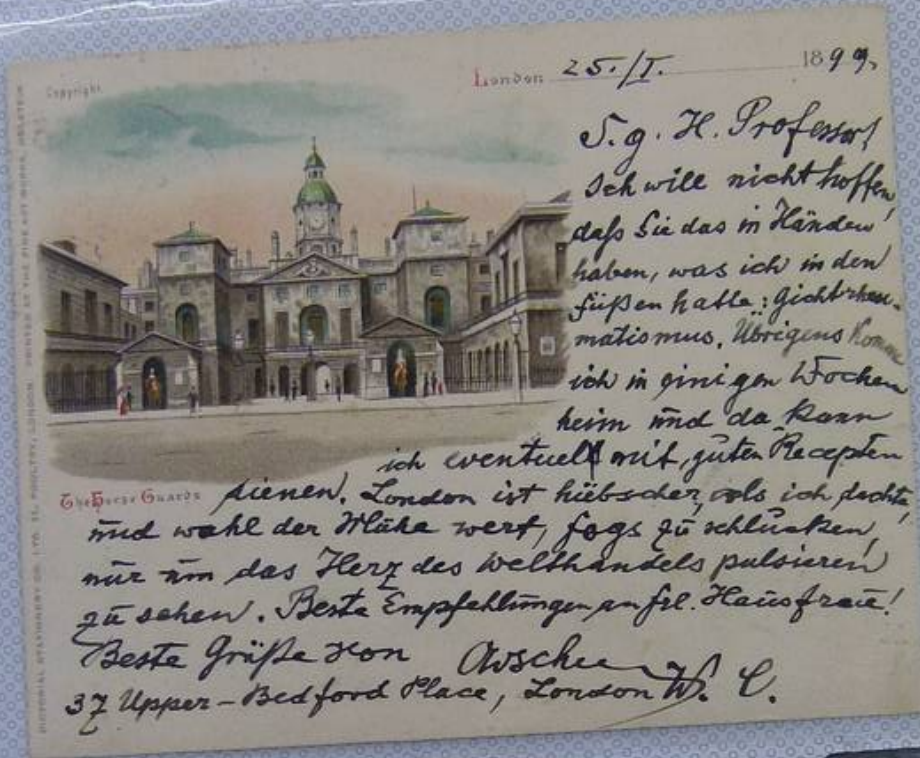 Copyright
London 25./I. 1899.
S. g. H. Professor!
Ich will nicht hoffen,
daß Sie das in Händen
haben, was ich in den
Füßen hatte: Gichtrheu-
matismus. Übrigens komme
ich in einigen Wochen
heim und da kann
ich eventuell mit „guten Recepten
The Horse Guards
dienen. London ist hübscher, als ich dachte,
und wohl der Mühe wert, Fogs zu schlucken,
nur um das Herz des Welthandels pulsieren
zu sehen. Beste Empfehlungen an frl. Hausfrau!
Beste Grüße von
37 Upper-Bedford Place, London W. C.
PICTORIAL STATIONERY CO. LTD. POULTRY, LONDON. PRINTED AT THE FINE ART WORKS, HOLSTEIN